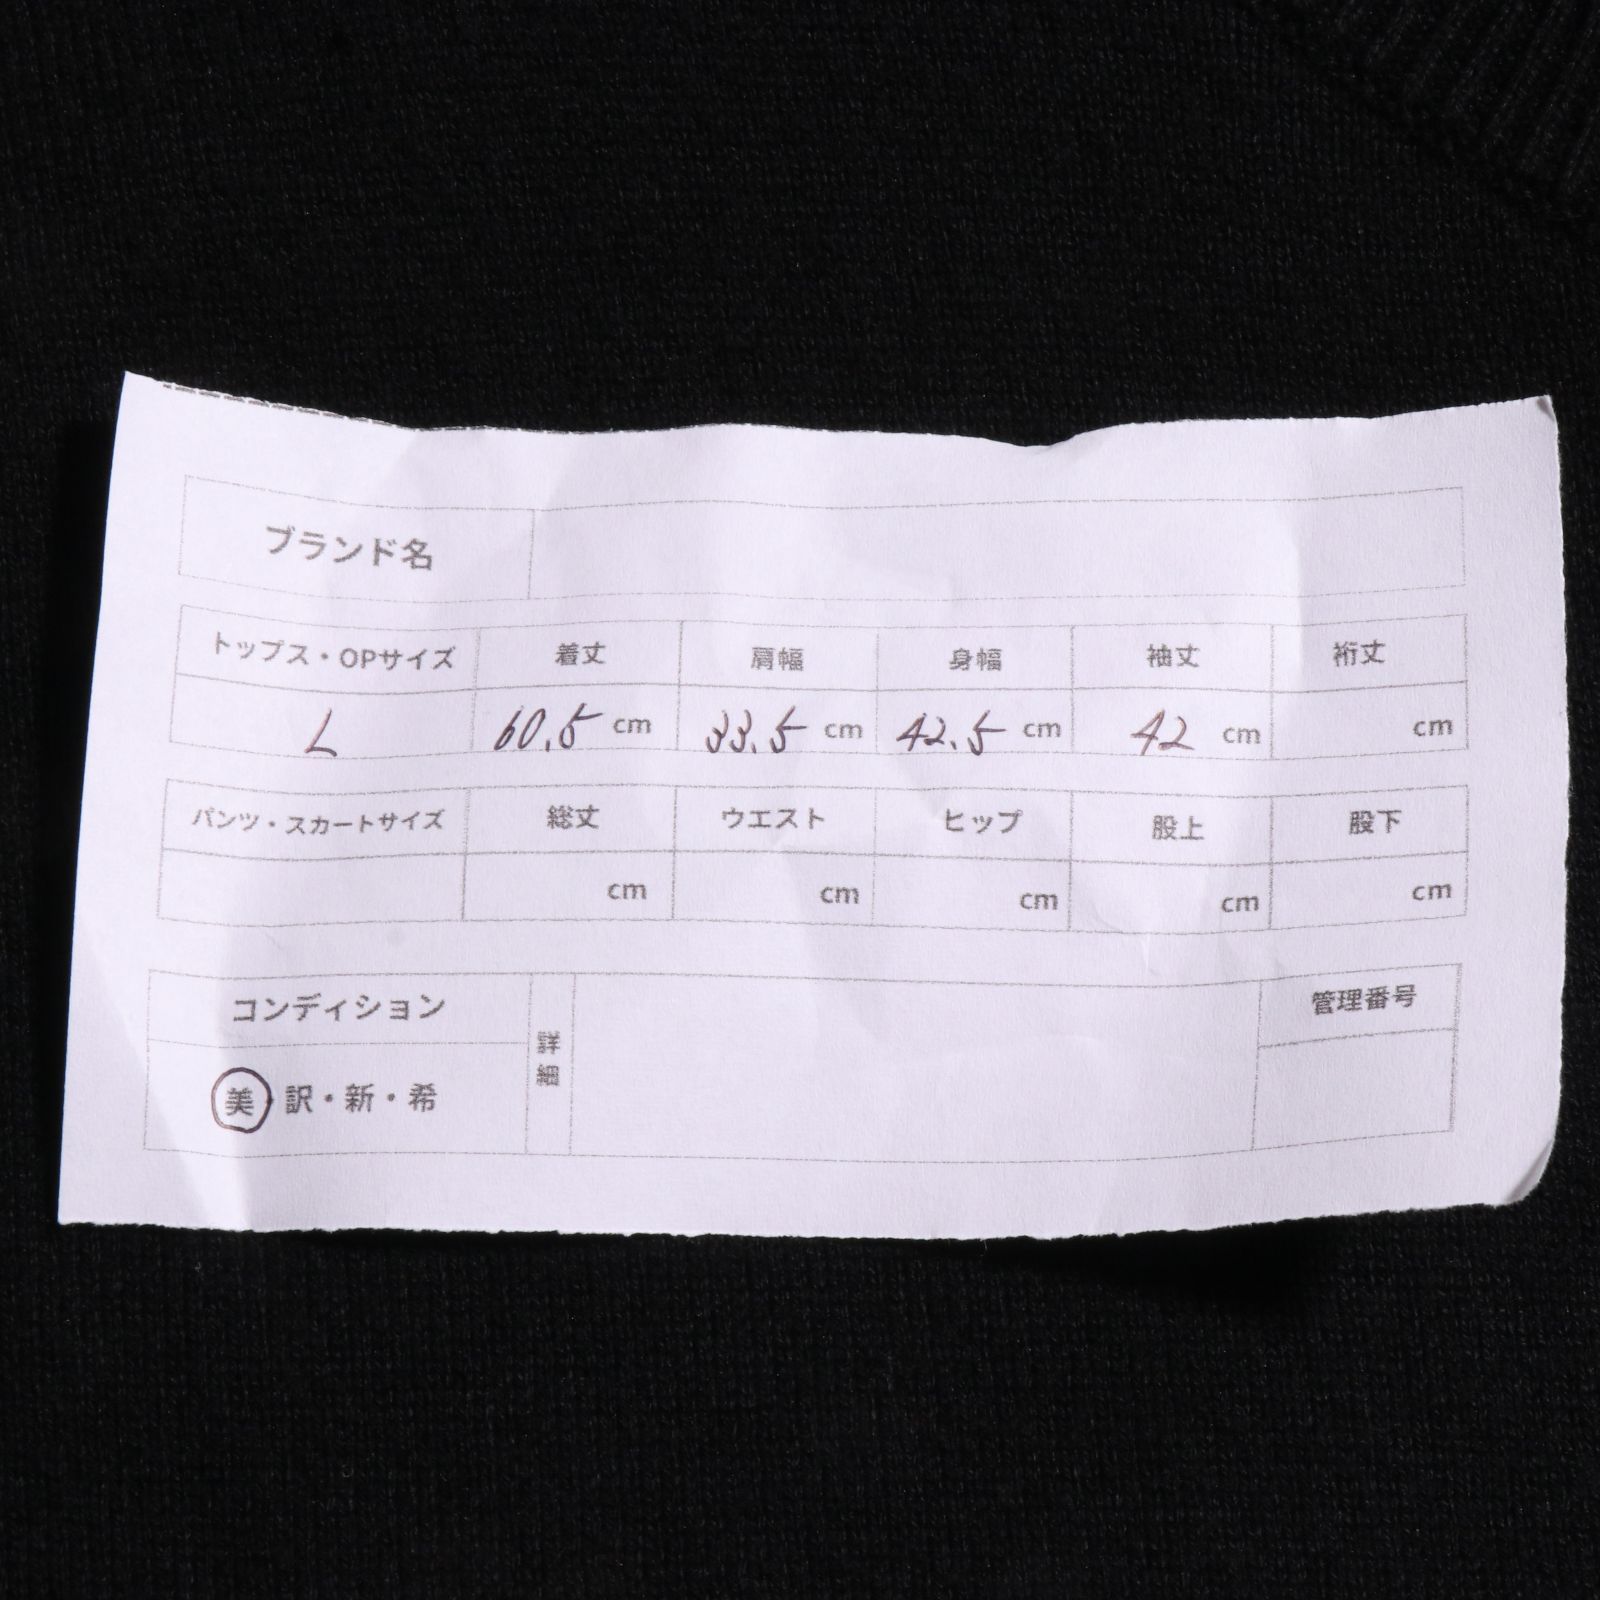 ブランド名
トップス・OPサイズ 着丈 肩幅 身幅 袖丈 裄丈
L 60.5 cm 33.5 cm 42.5 cm 42 cm cm
パンツ・スカートサイズ 総丈 ウエスト ヒップ 股上 股下
cm cm cm cm cm
コンディション 詳細 管理番号
美・訳・新・希